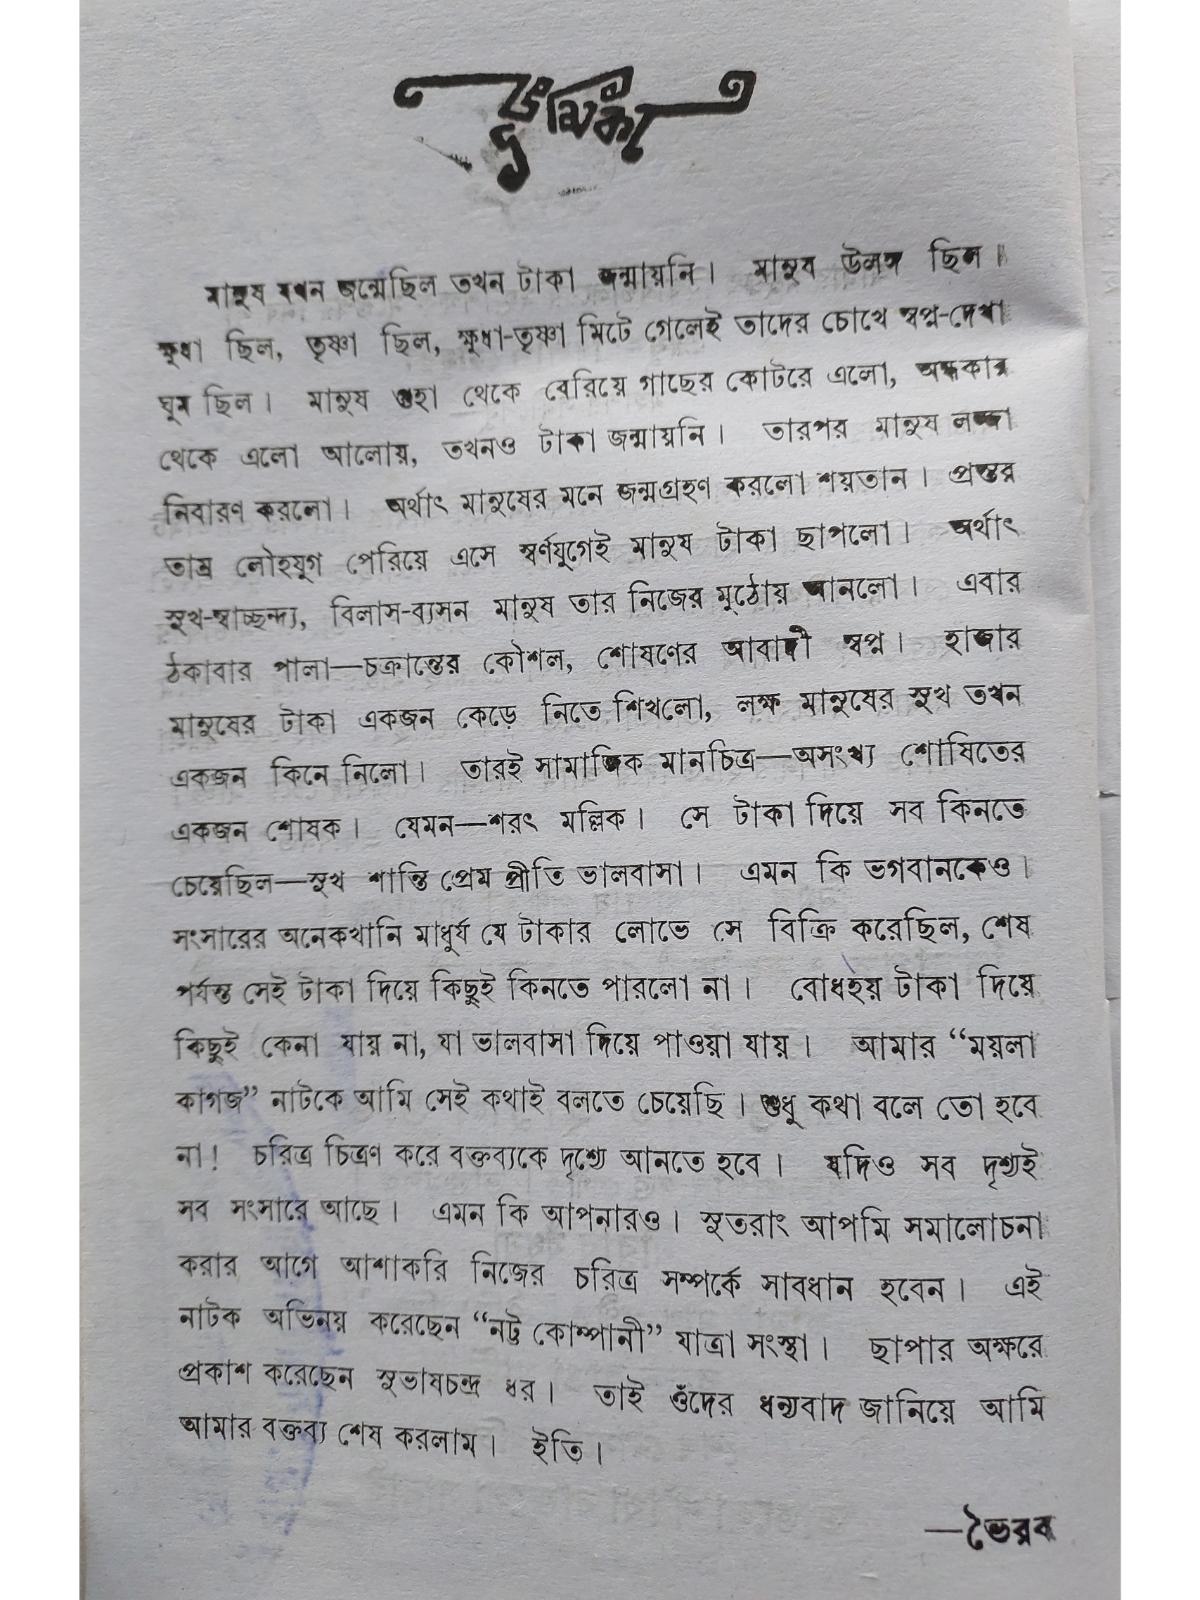 ভূমিকা
মানুষ যখন জন্মেছিল তখন টাকা জন্মায়নি। মানুষ উলঙ্গ ছিল।
ক্ষুধা ছিল, তৃষ্ণা ছিল, ক্ষুধা-তৃষ্ণা মিটে গেলেই তাদের চোখে স্বপ্ন-দেখা
ঘুম ছিল। মানুষ গুহা থেকে বেরিয়ে গাছের কোটরে এলো, অন্ধকার
থেকে এলো আলোয়, তখনও টাকা জন্মায়নি। তারপর মানুষ লজ্জা
নিবারণ করলো। অর্থাৎ মানুষের মনে জন্মগ্রহণ করলো শয়তান। প্রস্তর
তাম্র লৌহযুগ পেরিয়ে এসে স্বর্ণযুগেই মানুষ টাকা ছাপলো। অর্থাৎ
সুখ-স্বাচ্ছন্দ্য, বিলাস-ব্যসন মানুষ তার নিজের মুঠোয় আনলো। এবার
ঠকাবার পালা—চক্রান্তের কৌশল, শোষণের আবাদী স্বপ্ন। হাজার
মানুষের টাকা একজন কেড়ে নিতে শিখলো, লক্ষ মানুষের সুখ তখন
একজন কিনে নিলো। তারই সামাজিক মানচিত্র—অসংখ্য শোষিতের
একজন শোষক। যেমন—শরৎ মল্লিক। সে টাকা দিয়ে সব কিনতে
চেয়েছিল—সুখ শান্তি প্রেম প্রীতি ভালবাসা। এমন কি ভগবানকেও।
সংসারের অনেকখানি মাধুর্য যে টাকার লোভে সে বিক্রি করেছিল, শেষ
পর্যন্ত সেই টাকা দিয়ে কিছুই কিনতে পারলো না। বোধহয় টাকা দিয়ে
কিছুই কেনা যায় না, যা ভালবাসা দিয়ে পাওয়া যায়। আমার “ময়লা
কাগজ” নাটকে আমি সেই কথাই বলতে চেয়েছি। শুধু কথা বলে তো হবে
না! চরিত্র চিত্রণ করে বক্তব্যকে দৃশ্যে আনতে হবে। যদিও সব দৃশ্যই
সব সংসারে আছে। এমন কি আপনারও। সুতরাং আপমি সমালোচনা
করার আগে আশাকরি নিজের চরিত্র সম্পর্কে সাবধান হবেন। এই
নাটক অভিনয় করেছেন “নট্ট কোম্পানী” যাত্রা সংস্থা। ছাপার অক্ষরে
প্রকাশ করেছেন সুভাষচন্দ্র ধর। তাই ওঁদের ধন্যবাদ জানিয়ে আমি
আমার বক্তব্য শেষ করলাম। ইতি।
—ভৈরব